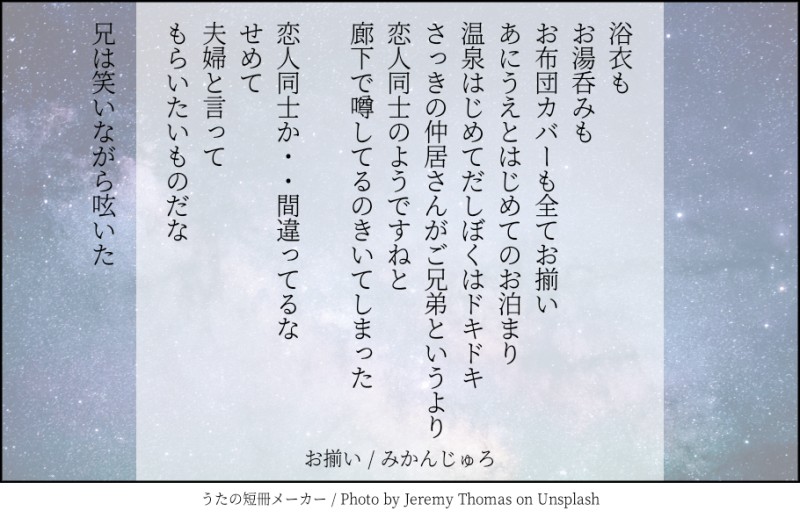 浴衣も
お湯呑みも
お布団カバーも全てお揃い
あにうえとはじめてのお泊まり
温泉はじめてだしぼくはドキドキ
さっきの仲居さんがご兄弟というより
恋人同士のようですねと
廊下で噂してるのきいてしまった
恋人同士か・・間違ってるな
せめて
夫婦と言って
もらいたいものだな
兄は笑いながら呟いた
お揃い / みかんじゅろ
うたの短冊メーカー / Photo by Jeremy Thomas on Unsplash